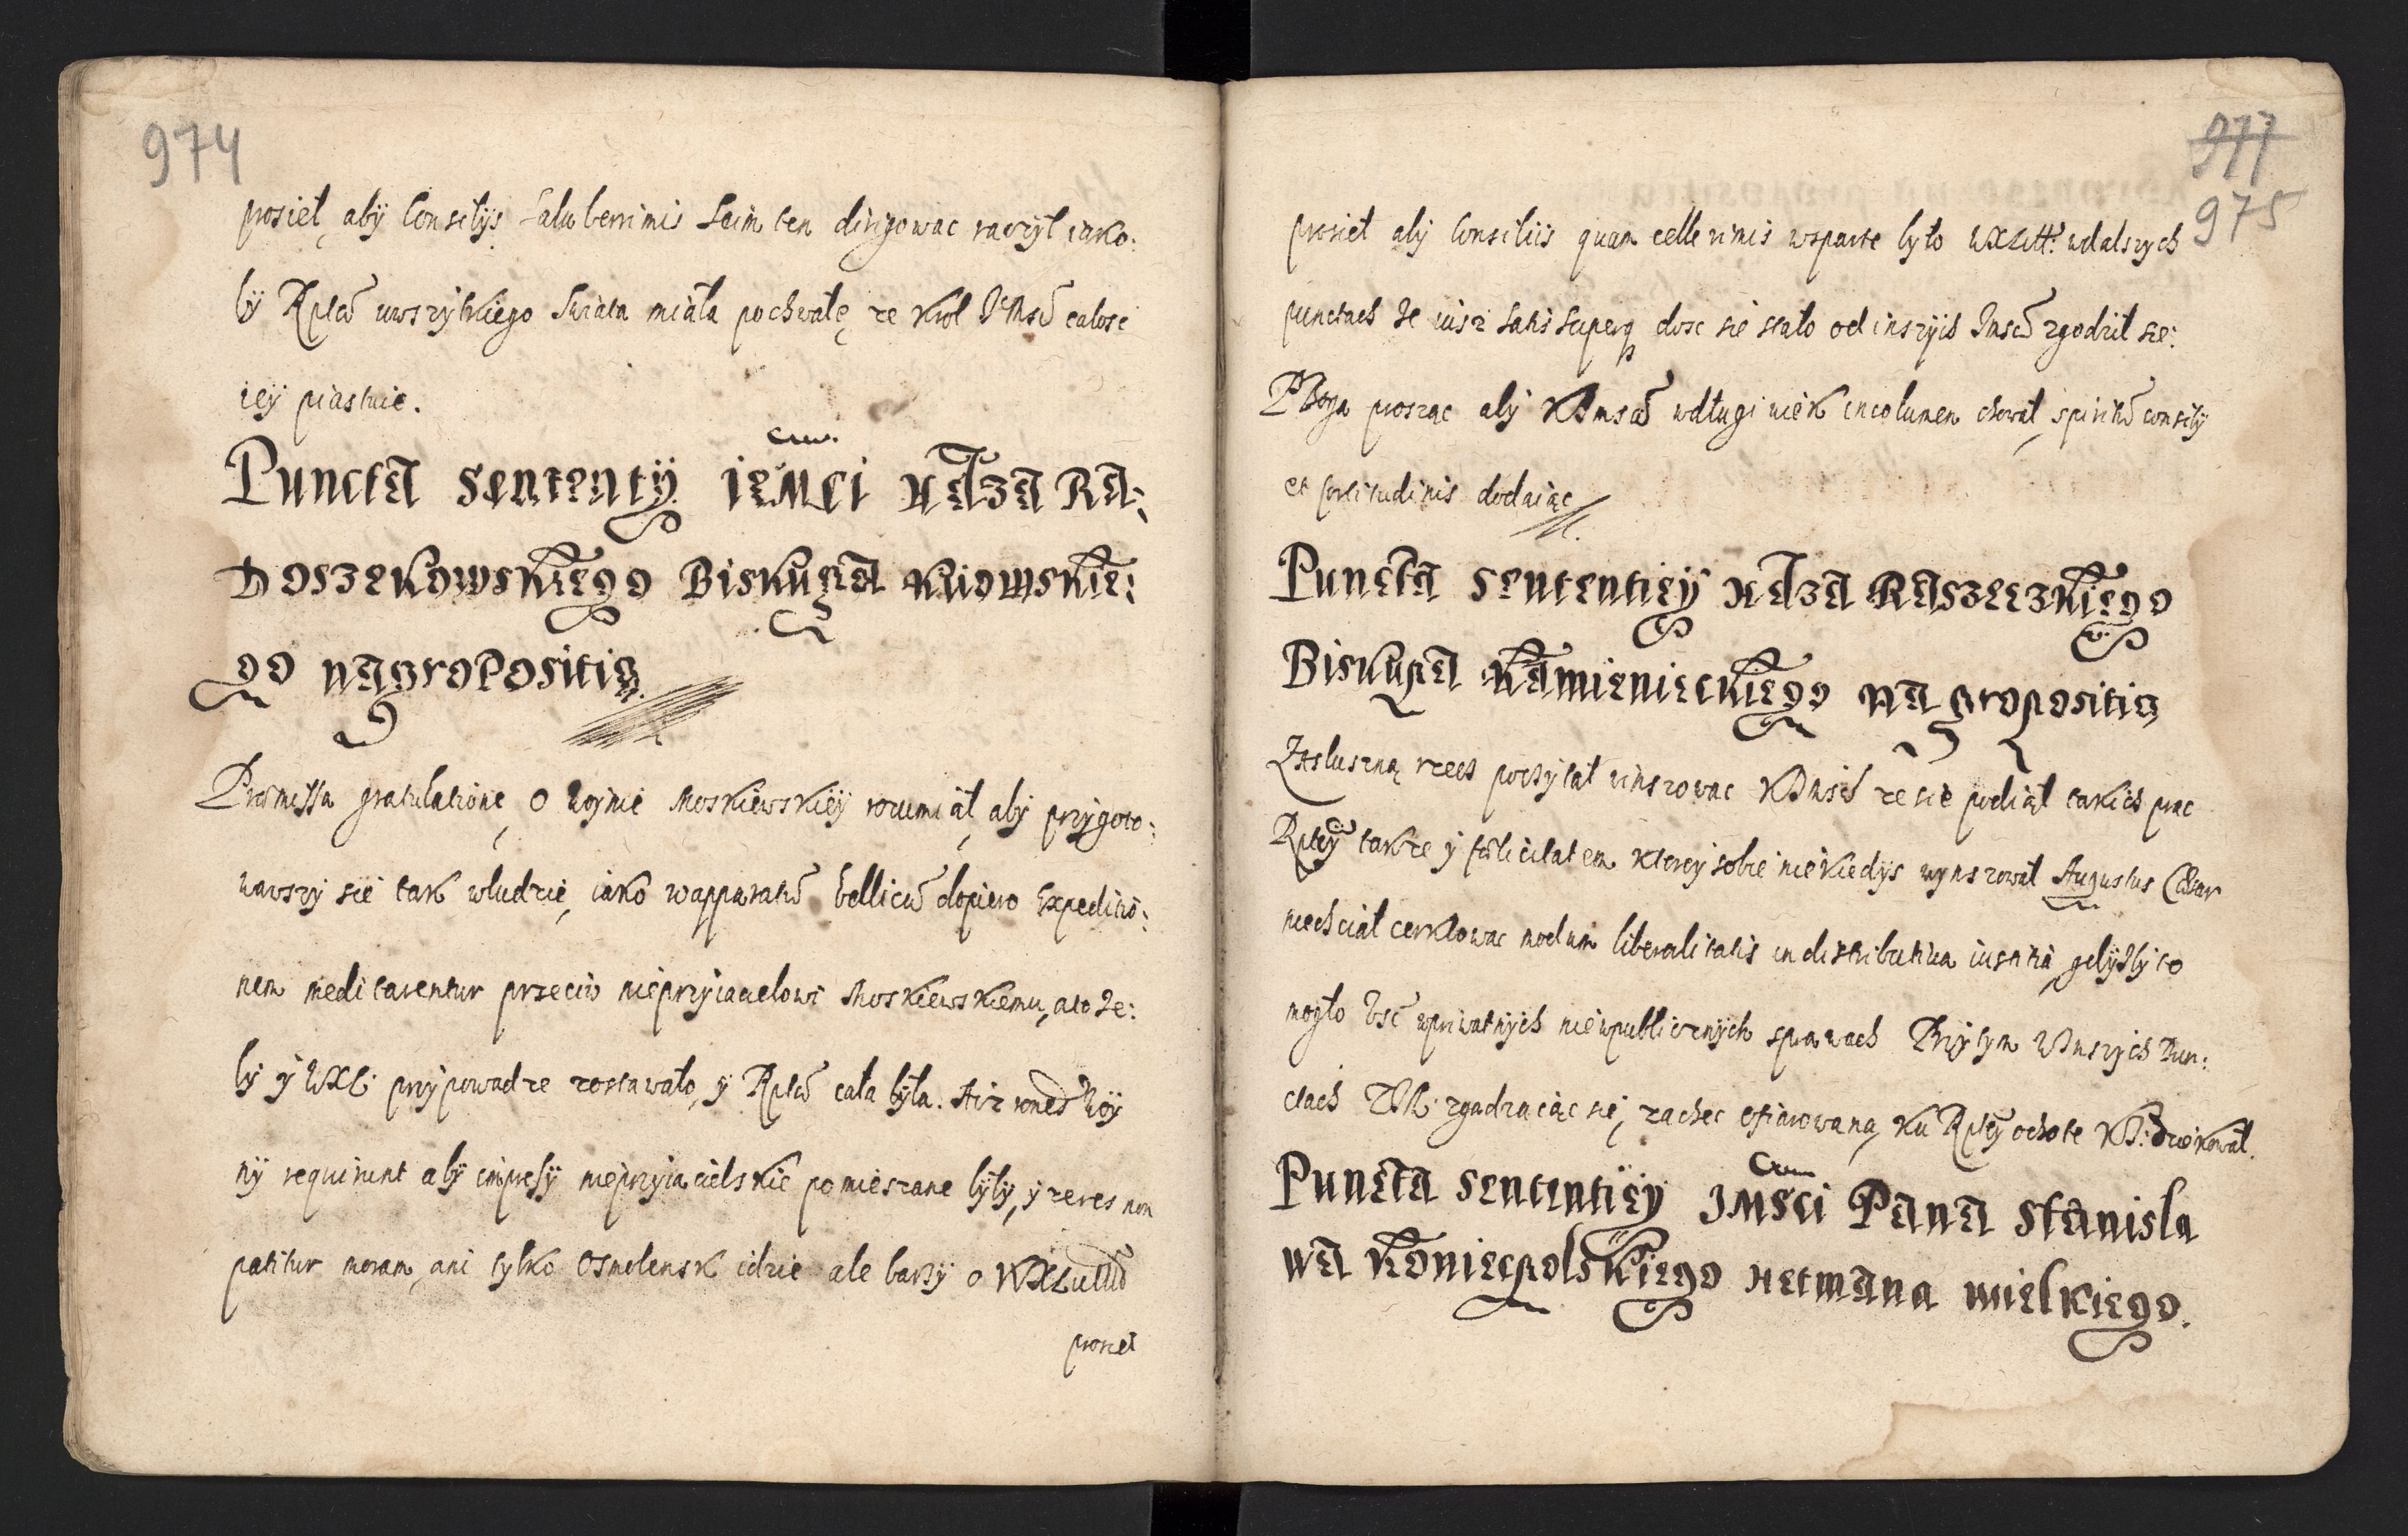 974
prosiel, aby Consilijs Saluberrimis Seim ten dirigowac raczyl iako:
by Rpta uwszytkiego Swiata miala pochwałę, ze Krol JeMsc calosc
iey piastuie.
Puncta sententy ieMci Xdza Ra:
Doszekowskiego Biskupa Kiowskie:
go na propositią
Præmissa gratulatione, o woynie Moskiewskiey rozumiał, aby przygoto:
wawszy sie tak wludzie, iako wapparatu bellicu dopiero Expeditio:
nem meditarentur przeciw nieprzyiacielowi Moskiewskiemu, a to ze:
by y WXL przy powadze zostawało, y Rpta cała była. Aiz
ny requirunt aby impresy nieprzyiacielskie pomieszane były, y ze res non
patitur moram, ani tylko Osmolensk idzie ale barzy o WXLitt
prosiel
977
975
prosiel aby Consiliis quam cellerimis wsparte było WXLitt: wdalszych
punctach ze iusz satis superq dosc sie stało od inszych Jmscu zgodził sie:
PBoga prosząc aby KJmsca wdługi wiek incolumen chowal, spiritu consilij
et fortitudinis dodaiąc
Puncta sententiey Xdza Raszeczkiego
Biskupa Kamienieckiego na propositią
Zasluszną rzecz poczytal winszowac KJmsci ze sie podiąl takich prac
Rptey także y felicitatem ktorey sobie niekiedys wynszowal Augustus Cæsar
niechciał certtowac modum liberalitatis in distributiua iustitia, gdyżby to
mogło bysc wpriwatnych niewpublicznych sprawach Przytym WJnszych Pun:
ctach zgadzaiąc sie, zachec ofiarowaną, ku Rptey ochote KJ: dziekował.
Puncta sententiey JMSci Pana Stanisla
wa Koniecpolskiego Hetmana wielkiego.